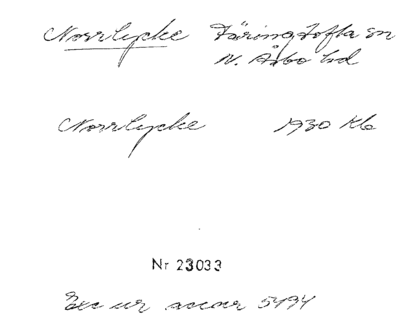 Norrlycke Färingtofta sn
N. Åsbo hd
Norrlycke 1930 Kb
Nr 23033
Exc ur accnr 5494